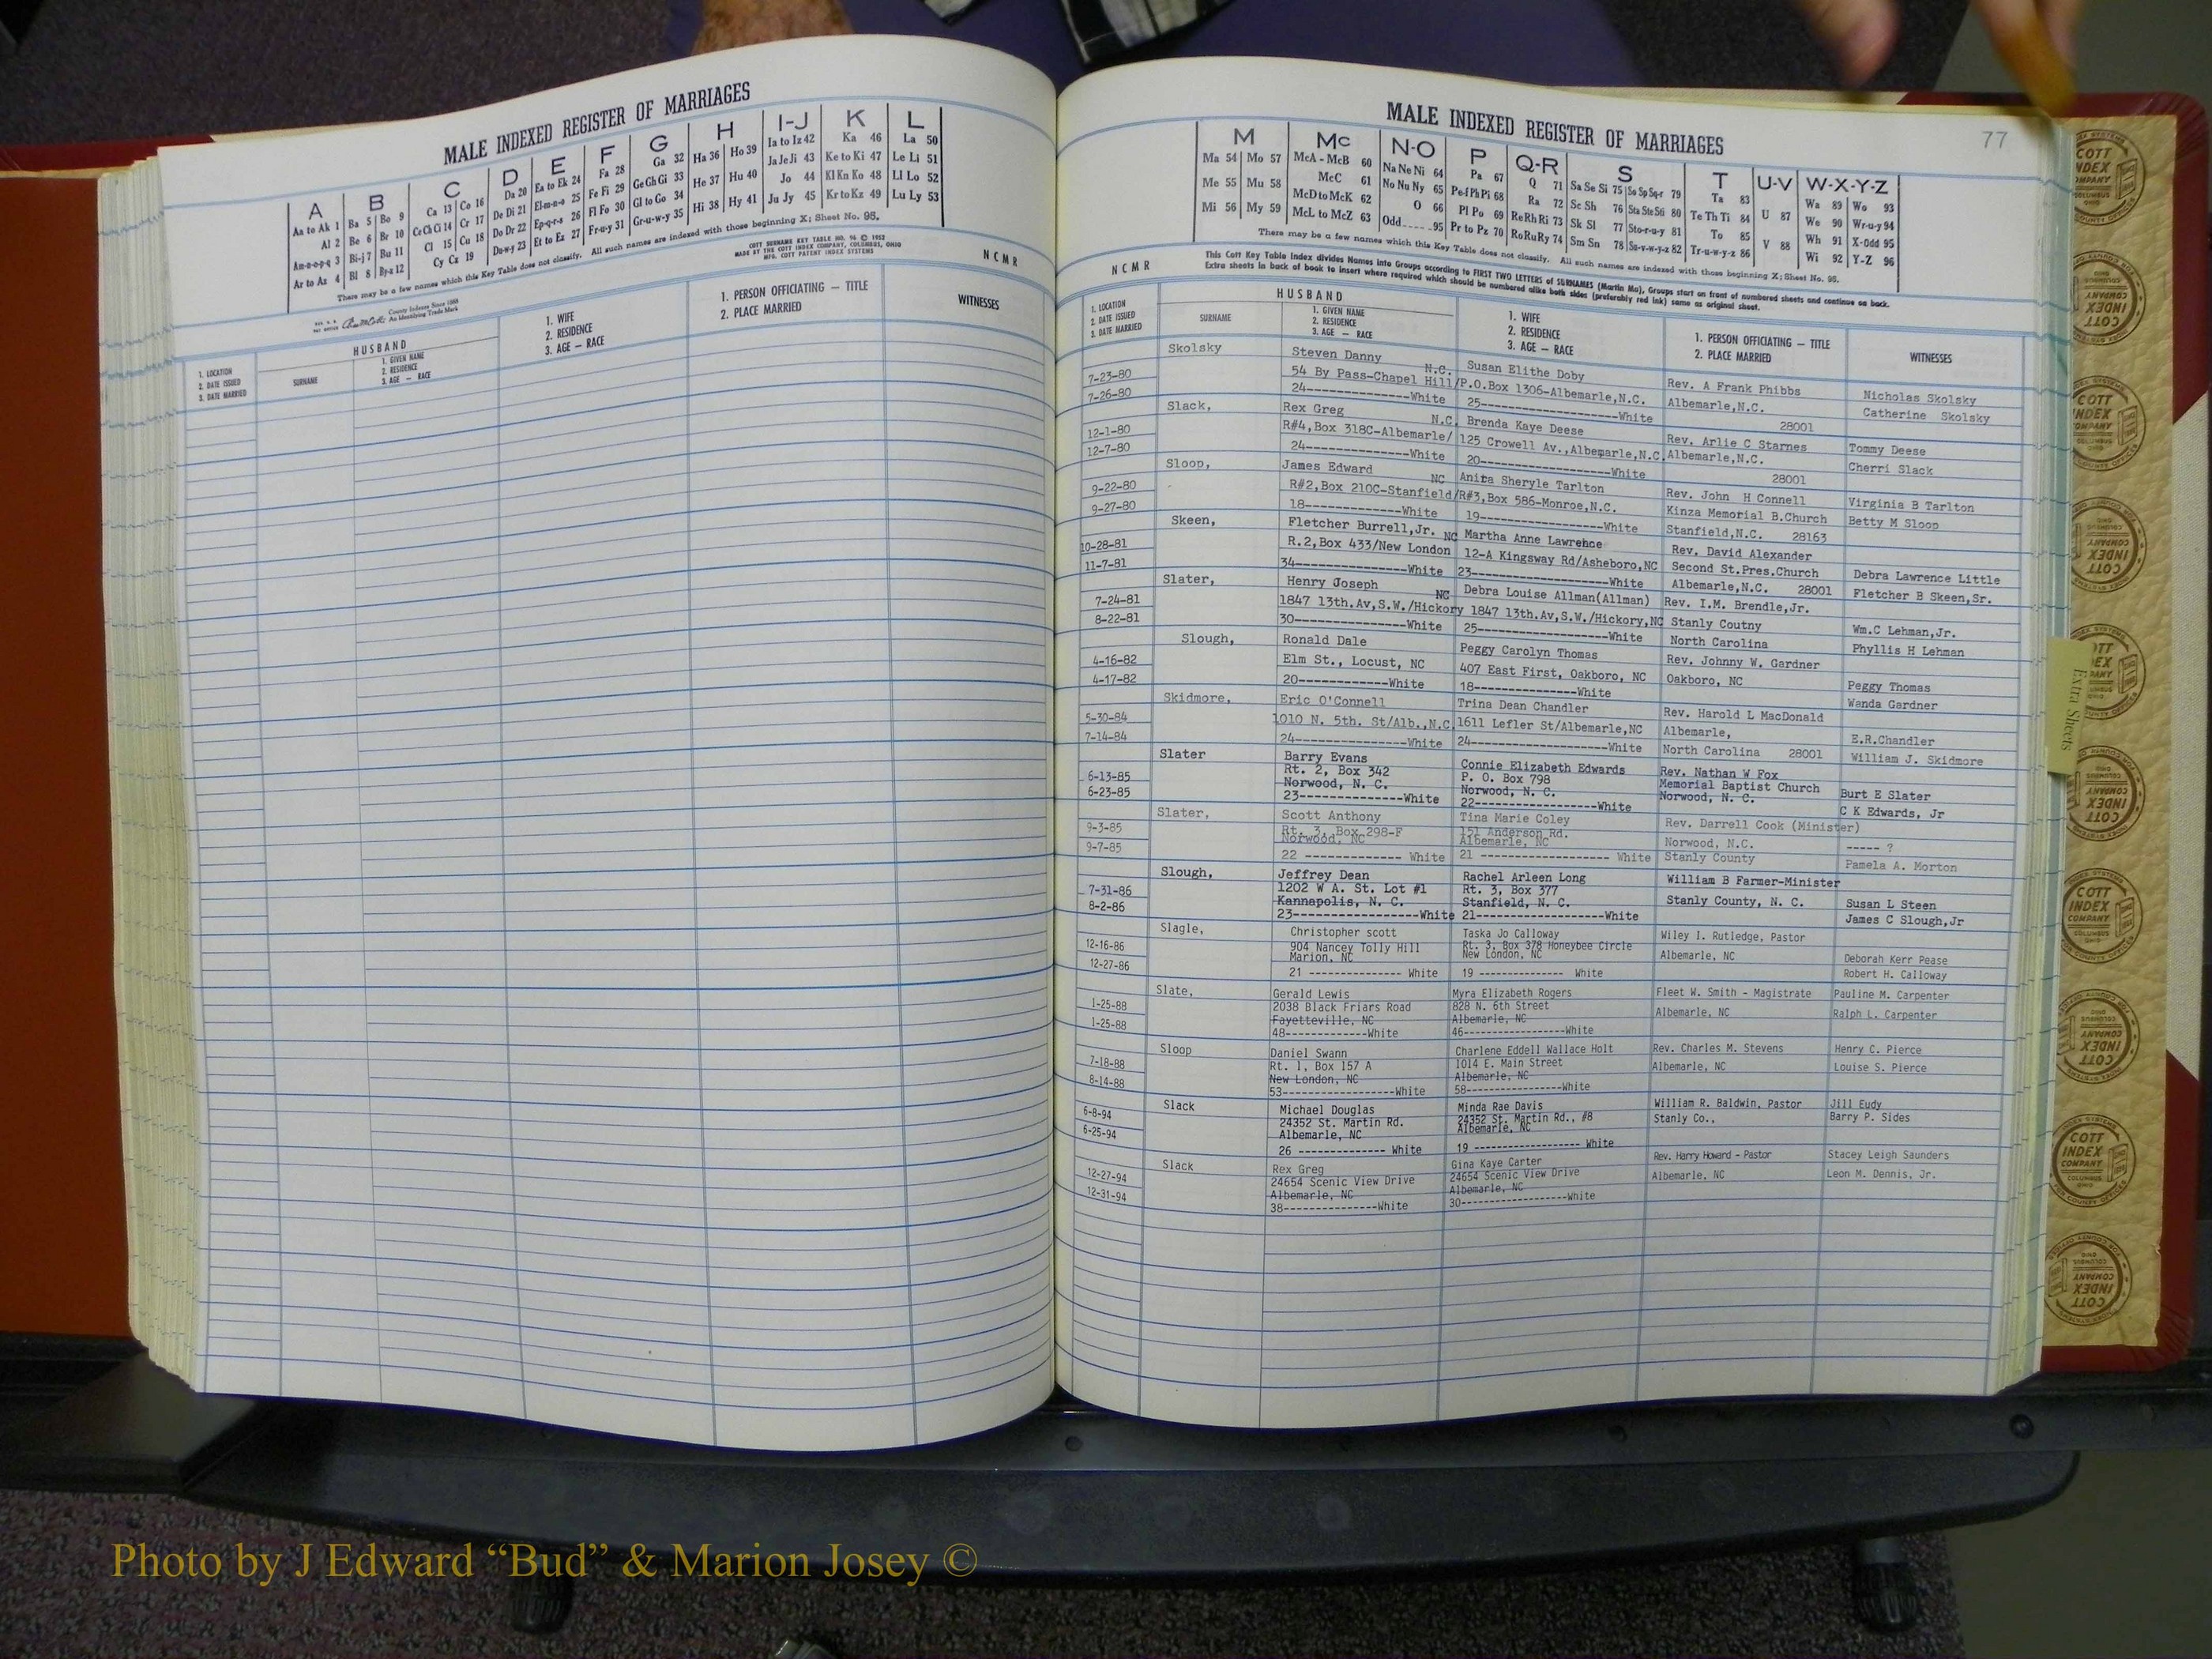 MALE INDEXED REGISTER OF MARRIAGES
A B C D E F G H I-J K L
Aa to Ak 1 Ba 5 Bo 9 Ca 13 Co 16 Da 20 Ea to Ek 24 Fa 28 Ga 32 Ha 36 Ho 39 Ia to Iz 42 Ka 46 La 50
Al 2 Be 6 Br 10 Ce Ch Ci 14 Cr 17 De Di 21 El-m-n-o 25 Fe Fi 29 Ge Gh Gi 33 He 37 Hu 40 Ja Je Ji 43 Ke to Ki 47 Le Li 51
Am-n-o-p-q 3 Bi-j 7 Bu 11 Cl 15 Cu 18 Do Dr 22 Ep-q-r-s 26 Fl Fo 30 Gl to Go 34 Hi 38 Hy 41 Jo 44 Kl Kn Ko 48 Ll Lo 52
Ar to Az 4 Bl 8 By-z 12 Cy Cz 19 Du-w-y 23 Et to Ez 27 Fr-u-y 31 Gr-u-w-y 35 Ju Jy 45 Kr to Kz 49 Lu Ly 53
There may be a few names which this Key Table does not classify. All such names are indexed with those beginning X; Sheet No. 95.
COTT SURNAME KEY TABLE NO. 96 © 1953
MADE BY THE COTT INDEX COMPANY, COLUMBUS, OHIO
MFG. COTT PATENT INDEX SYSTEMS
N C M R
County Indexes Since 1888
An Identifying Trade Mark
1. LOCATION
2. DATE ISSUED
3. DATE MARRIED
HUSBAND
SURNAME
1. GIVEN NAME
2. RESIDENCE
3. AGE — RACE
1. WIFE
2. RESIDENCE
3. AGE — RACE
1. PERSON OFFICIATING — TITLE
2. PLACE MARRIED
WITNESSES
MALE INDEXED REGISTER OF MARRIAGES
77
M Mc N-O P Q-R S T U-V W-X-Y-Z
Ma 54 Mo 57 McA - McB 60 Na Ne Ni 64 Pa 67 Q 71 Sa Se Si 75 So Sp Sq-r 79 Ta 83 U 87 Wa 89 Wo 93
Me 55 Mu 58 McC 61 No Nu Ny 65 Pe-f Ph Pi 68 Ra 72 Sc Sh 76 Sta Ste Sti 80 Te Th Ti 84 V 88 We 90 Wr-u-y 94
Mi 56 My 59 McD to McK 62 O 66 Pl Po 69 Re Rh Ri 73 Sk Sl 77 Sto-r-u-y 81 To 85 Wh 91 X-Odd 95
McL to McZ 63 Odd 95 Pr to Pz 70 Ro Ru Ry 74 Sm Sn 78 Su-v-w-y-z 82 Tr-u-w-y-z 86 Wi 92 Y-Z 96
There may be a few names which this Key Table does not classify. All such names are indexed with those beginning X; Sheet No. 95.
This Cott Key Table Index divides Names into Groups according to FIRST TWO LETTERS of SURNAMES (Martin Ma), Groups start on front of numbered sheets and continue on back.
Extra sheets in back of book to insert where required which should be numbered alike both sides (preferably red ink) same as original sheet.
N C M R
1. LOCATION
2. DATE ISSUED
3. DATE MARRIED
HUSBAND
SURNAME
1. GIVEN NAME
2. RESIDENCE
3. AGE — RACE
1. WIFE
2. RESIDENCE
3. AGE — RACE
1. PERSON OFFICIATING — TITLE
2. PLACE MARRIED
WITNESSES
Skolsky Steven Danny N.C. Susan Elithe Doby Rev. A Frank Phibbs
7-23-80 54 By Pass-Chapel Hill/ P.O.Box 1306-Albemarle,N.C. Albemarle,N.C. Nicholas Skolsky
7-26-80 24-------------White 25------------------White 28001 Catherine Skolsky
Slack, Rex Greg N.C. Brenda Kaye Deese Rev. Arlie C Starnes
12-1-80 R#4,Box 318C-Albemarle/ 125 Crowell Av.,Albemarle,N.C. Albemarle,N.C. Tommy Deese
12-7-80 24-------------White 20------------------White 28001 Cherri Slack
Sloop, James Edward NC Anita Sheryle Tarlton Rev. John H Connell
9-22-80 R#2,Box 210C-Stanfield/ R#3,Box 586-Monroe,N.C. Kinza Memorial B.Church Virginia B Tarlton
9-27-80 18-------------White 19------------------White Stanfield,N.C. 28163 Betty M Sloop
Skeen, Fletcher Burrell,Jr. NC Martha Anne Lawrence Rev. David Alexander
10-28-81 R.2,Box 433/New London 12-A Kingsway Rd/Asheboro,NC Second St.Pres.Church Debra Lawrence Little
11-7-81 34-------------White 23------------------White Albemarle,N.C. 28001 Fletcher B Skeen,Sr.
Slater, Henry Joseph NC Debra Louise Allman(Allman) Rev. I.M. Brendle,Jr.
7-24-81 1847 13th.Av,S.W./Hickory 1847 13th.Av,S.W./Hickory,NC Stanly Coutny Wm.C Lehman,Jr.
8-22-81 30-------------White 25------------------White North Carolina Phyllis H Lehman
Slough, Ronald Dale Peggy Carolyn Thomas Rev. Johnny W. Gardner
4-16-82 Elm St., Locust, NC 407 East First, Oakboro, NC Oakboro, NC Peggy Thomas
4-17-82 20------------White 18--------------White Wanda Gardner
Skidmore, Eric O'Connell Trina Dean Chandler Rev. Harold L MacDonald
5-30-84 1010 N. 5th. St/Alb.,N.C. 1611 Lefler St/Albemarle,NC Albemarle, E.R.Chandler
7-14-84 24-------------White 24------------------White North Carolina 28001 William J. Skidmore
Slater Barry Evans Connie Elizabeth Edwards Rev. Nathan W Fox
6-13-85 Rt. 2, Box 342 P. O. Box 798 Memorial Baptist Church Burt E Slater
6-23-85 Norwood, N. C. Norwood, N. C. Norwood, N. C. C K Edwards, Jr
23--------------White 22----------------White
Slater, Scott Anthony Tina Marie Coley Rev. Darrell Cook (Minister)
9-3-85 Rt. 3, Box 298-F 151 Anderson Rd. Norwood, N.C. ----- ?
Norwood, NC Albemarle, NC
9-7-85 22 ------------- White 21 ----------------- White Stanly County Pamela A. Morton
Slough, Jeffrey Dean Rachel Arleen Long William B Farmer-Minister
7-31-86 1202 W A. St. Lot #1 Rt. 3, Box 377 Stanly County, N. C. Susan L Steen
8-2-86 Kannapolis, N. C. Stanfield, N. C. James C Slough,Jr
23-----------------White 21-----------------White
Slagle, Christopher scott Taska Jo Calloway Wiley I. Rutledge, Pastor
12-16-86 904 Nancey Tolly Hill Rt. 3, Box 378 Honeybee Circle Albemarle, NC Deborah Kerr Pease
Marion, NC New London, NC
12-27-86 21 -------------- White 19 ------------- White Robert H. Calloway
Slate, Gerald Lewis Myra Elizabeth Rogers Fleet W. Smith - Magistrate Pauline M. Carpenter
1-25-88 2038 Black Friars Road 828 N. 6th Street Albemarle, NC Ralph L. Carpenter
1-25-88 Fayetteville, NC Albemarle, NC
48------------White 46----------------White
Sloop Daniel Swann Charlene Eddell Wallace Holt Rev. Charles M. Stevens Henry C. Pierce
7-18-88 Rt. 1, Box 157 A 1014 E. Main Street Albemarle, NC Louise S. Pierce
8-14-88 New London, NC Albemarle, NC
53---------------White 58---------------White
Slack Michael Douglas Minda Rae Davis William R. Baldwin, Pastor Jill Eudy
6-8-94 24352 St. Martin Rd. 24352 St. Martin Rd., #8 Stanly Co., Barry P. Sides
6-25-94 Albemarle, NC Albemarle, NC
26 -------------- White 19 ----------------- White
Slack Rex Greg Gina Kaye Carter Rev. Harry Howard - Pastor Stacey Leigh Saunders
12-27-94 24654 Scenic View Drive 24654 Scenic View Drive Albemarle, NC Leon M. Dennis, Jr.
12-31-94 Albemarle, NC Albemarle, NC
38---------------White 30-----------------White
Extra Sheets
COTT INDEX COMPANY COLUMBUS OHIO
Photo by J Edward “Bud” & Marion Josey ©